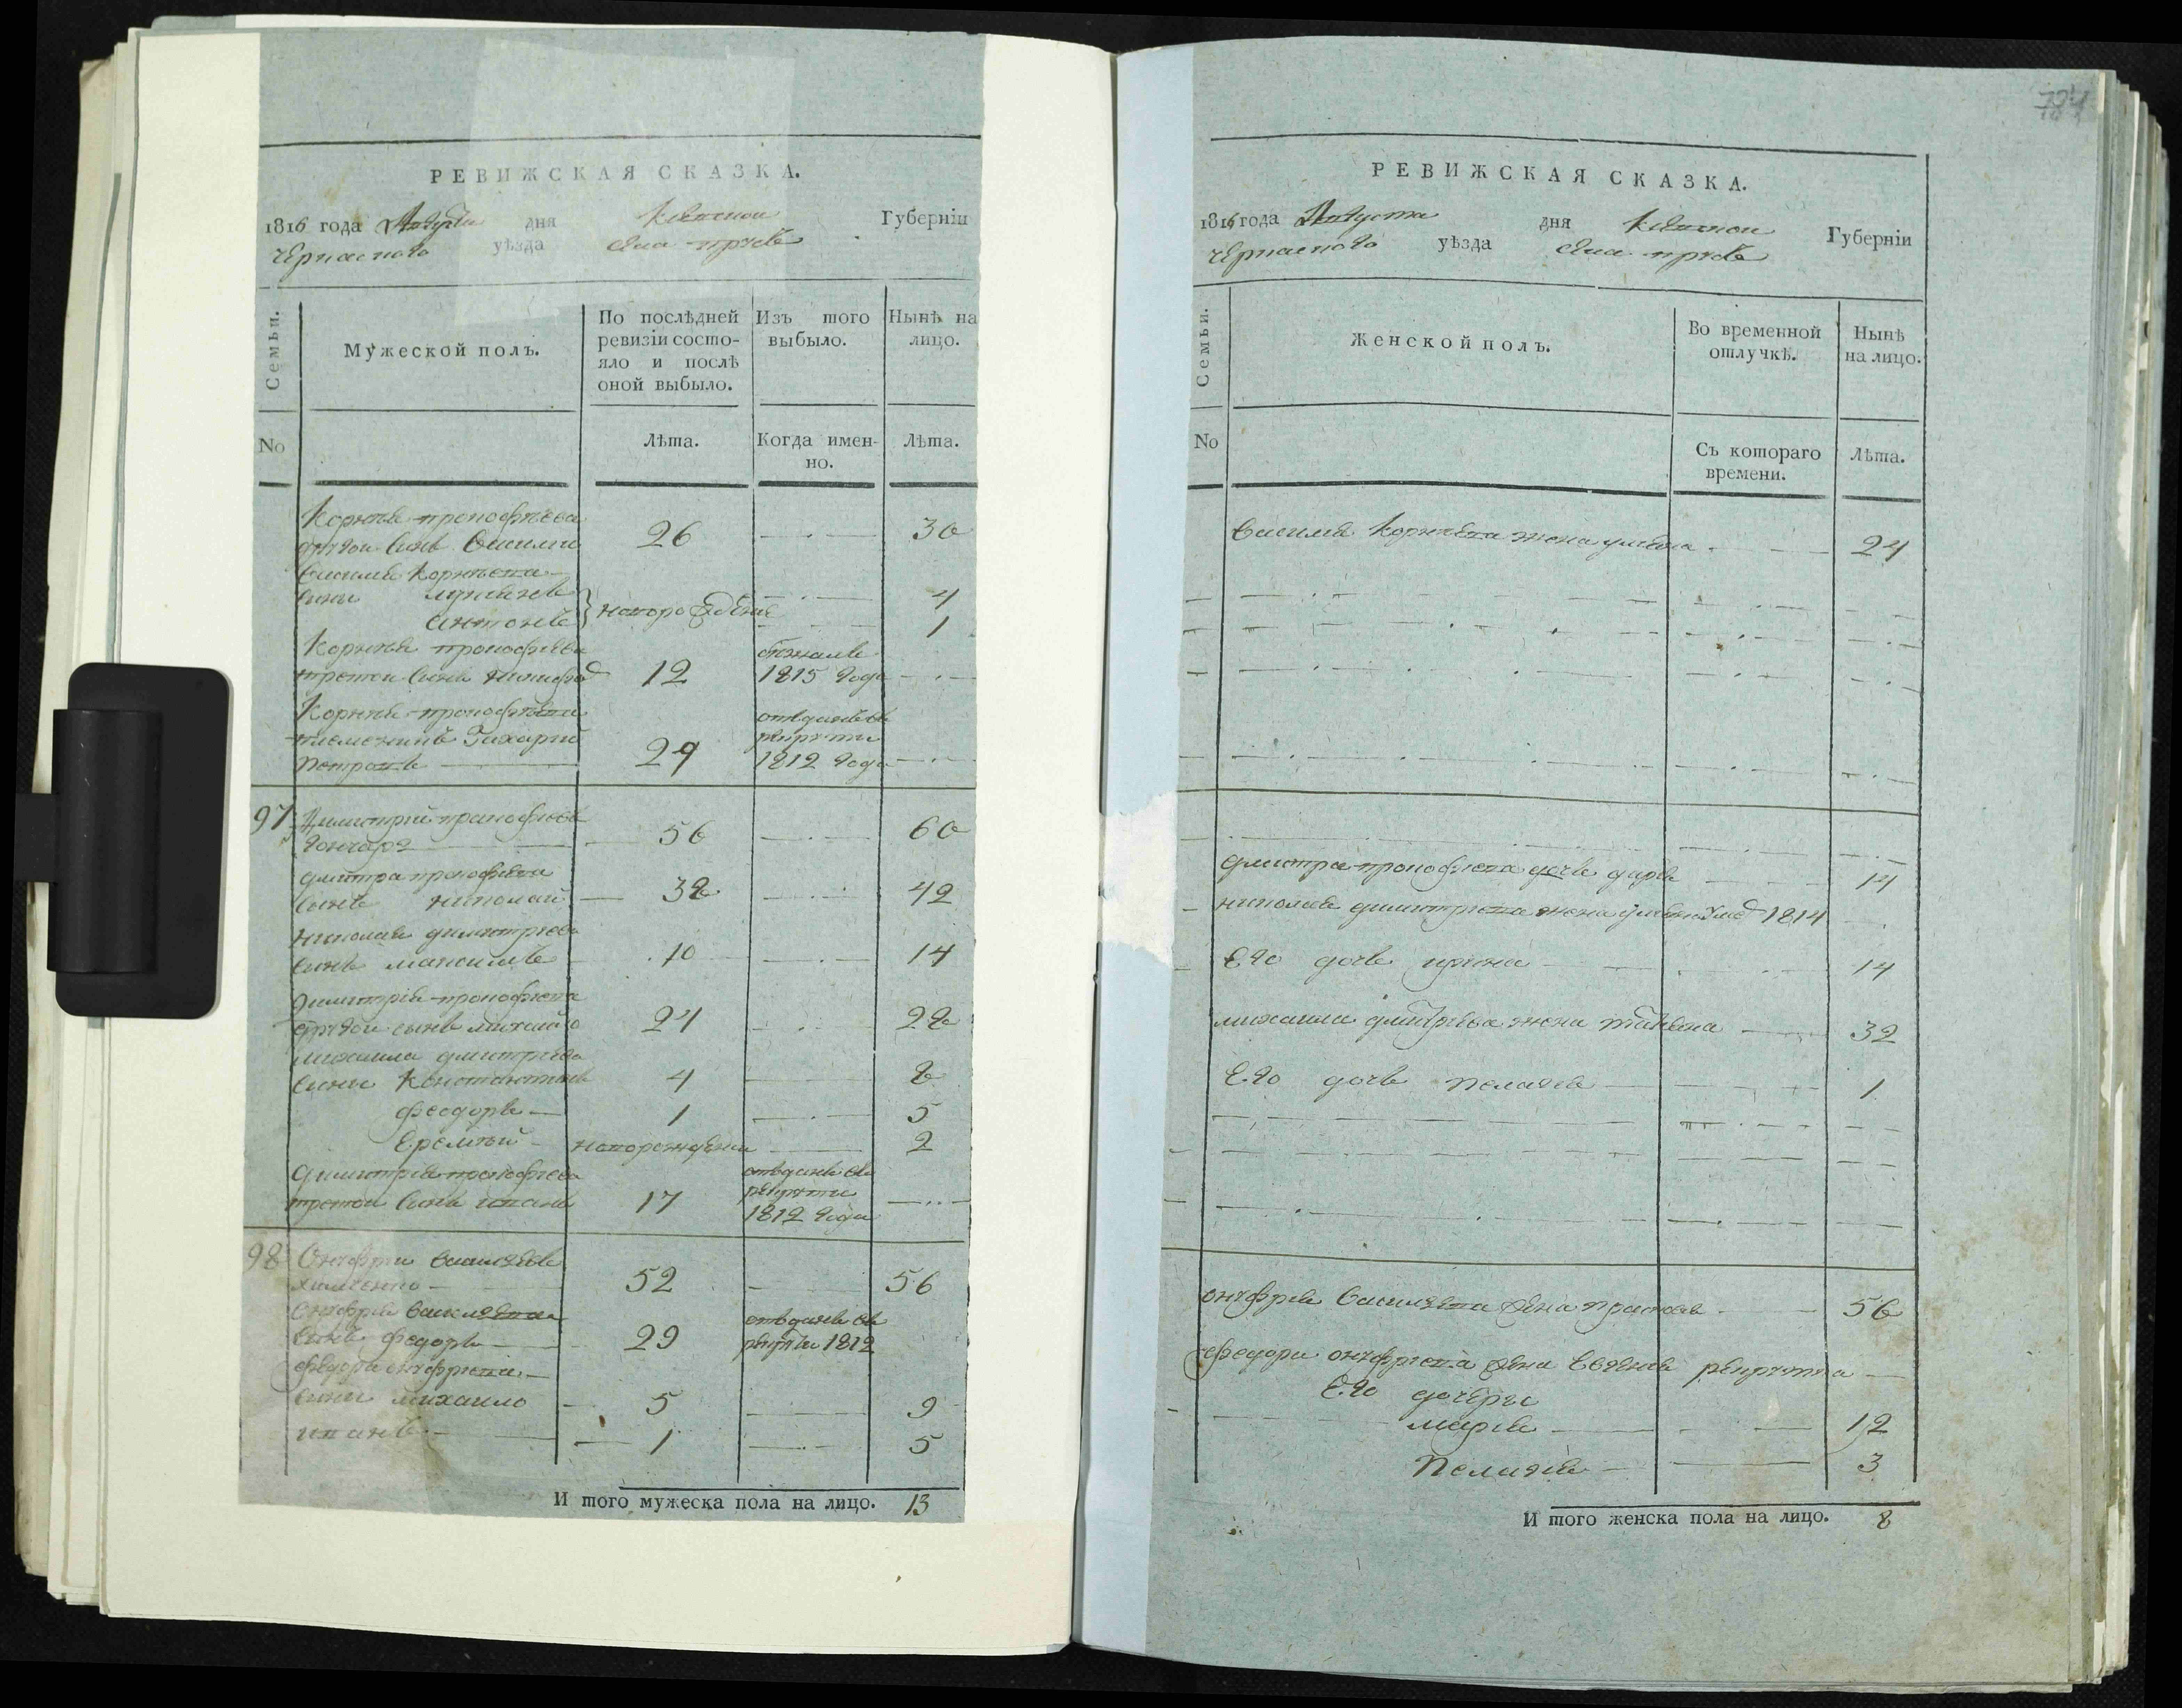 РЕВИЖСКАЯ СКАЗКА.
1816 года Августа дня Киевской Губерніи
Черкаского уѣзда села
Семьи.
Мужеской полъ.
По послѣдней ревизіи состояло и послѣ оной выбыло.
Изъ того выбыло.
Нынѣ на лицо.
No
Лѣта.
Когда именно.
Лѣта.
Корнѣя прокофиева
другой синъ Василий 26 30
Василия Корнѣева
сини 4
антонъ новорожденые 1
Корнѣя прокофиева бѣжалъ
третой синъ 12 1815 года
Корнѣя прокофиева отъданъ въ
племенникъ Захарий рекруты
петровъ 29 1812 года
97 Димитрий прокофиевъ
гончаръ 56 60
дмитра прокофиева
синъ николай 38 42
николая димитриева
синъ 10 14
Димитрія прокофиева
другой синъ михайло 24 28
михаила дмитриева
сини Константинъ 4 8
феодоръ 1 5
Еремѣй новорожденый 2
Димитрия прокофиева отъданъ въ
третой синъ иванъ 17 рекруты
1812 года
98 Онуфрий василиевъ
52 56
Онуфрия василиева отъданъ въ
синъ федоръ 29 рекруты 1812
федора онуфриева
сини михаило 5 9
иванъ 1 5
И того мужеска пола на лицо. 13
784
РЕВИЖСКАЯ СКАЗКА.
1816 года Августа дня Киевской Губерніи
Черкаского уѣзда села
Семьи.
Женской полъ.
Во временной отлучкѣ.
Нынѣ на лицо.
No
Съ котораго времени.
Лѣта.
Василия Корнѣева жена улияна 24
дмитра прокофиева дочь дарья 14
николая димитриева жена улияна 1814
Его дочь ирина 14
михаила дмитриева жена татияна 32
Его дочь пелагея 1
онуфрия василиева жена 56
федора онуфриева жена рекрутка
Его дочери
марья 12
Пелагея 3
И того женска пола на лицо. 8